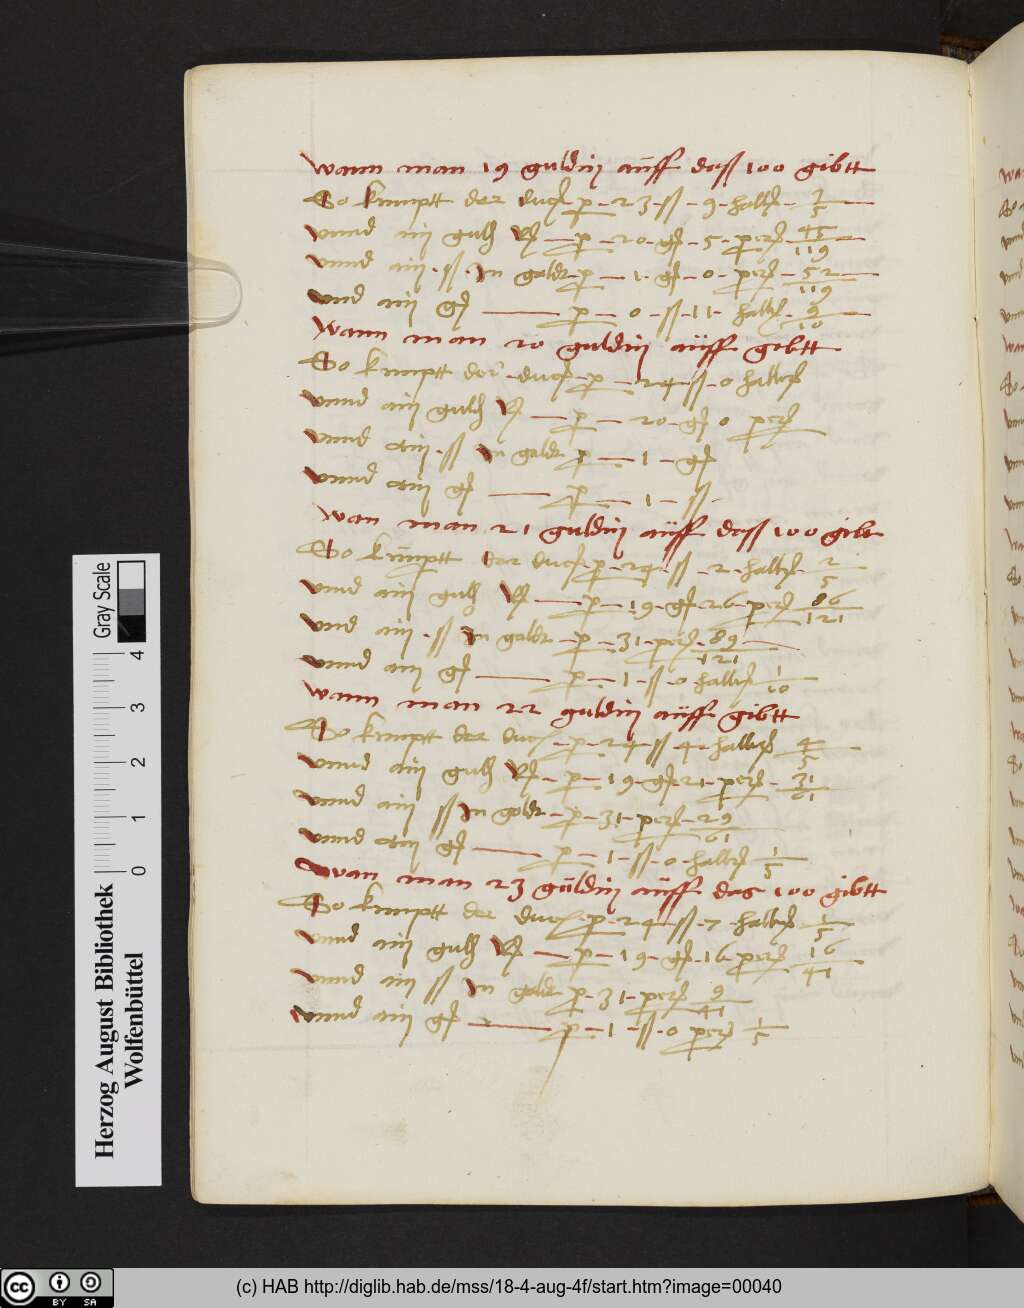 wann man 19 guldin auff dass 100 gibtt
So kumptt der duc p 23 ß 9 hallr 2/5
vnnd ain guld p 20 gß 5 perß 45/119
vnnd ain ß In goldt p 1 gß 0 perß 52/119
vnd ain gß p 0 ß 11 hallr 9/10
wann man 20 guldin aüff gebtt
So kumptt der duc p 24 ß 0 hallr
vnnd ain guld p 20 gß 0 perß
vnnd ain ß In goldt p 1 gß
vnnd ain gß p 1 ß
wan man 21 guldin aüff dass 100 gibt
So kümptt der duc p 24 ß 2 hallr 2/5
vnnd ain guld p 19 gß 26 perß 86/121
vnnd ain ß In goldt p 31 perß 89/121
vnnd ain gß p 1 ß 0 hallr 1/10
wann man 22 guldin aüff gibtt
So kumptt der duc p 24 ß 4 hallr 4/5
vnnd ain guld p 19 gß 21 perß 31/61
vnnd ain ß In goldt p 31 perß 29/61
vnnd ain gß p 1 ß 0 hallr 1/5
wan man 23 güldin aüff das 100 gibtt
So kumptt der duc p 24 ß 7 hallr 1/5
vnnd ain guld p 19 gß 16 perß 16/41
vnnd ain ß In goldt p 31 perß 9/41
vnnd ain gß p 1 ß 0 perß 1/5
Gray Scale
4
3
2
1
0
Herzog August Bibliothek
Wolfenbüttel
cc BY SA
(c) HAB http://diglib.hab.de/mss/18-4-aug-4f/start.htm?image=00040